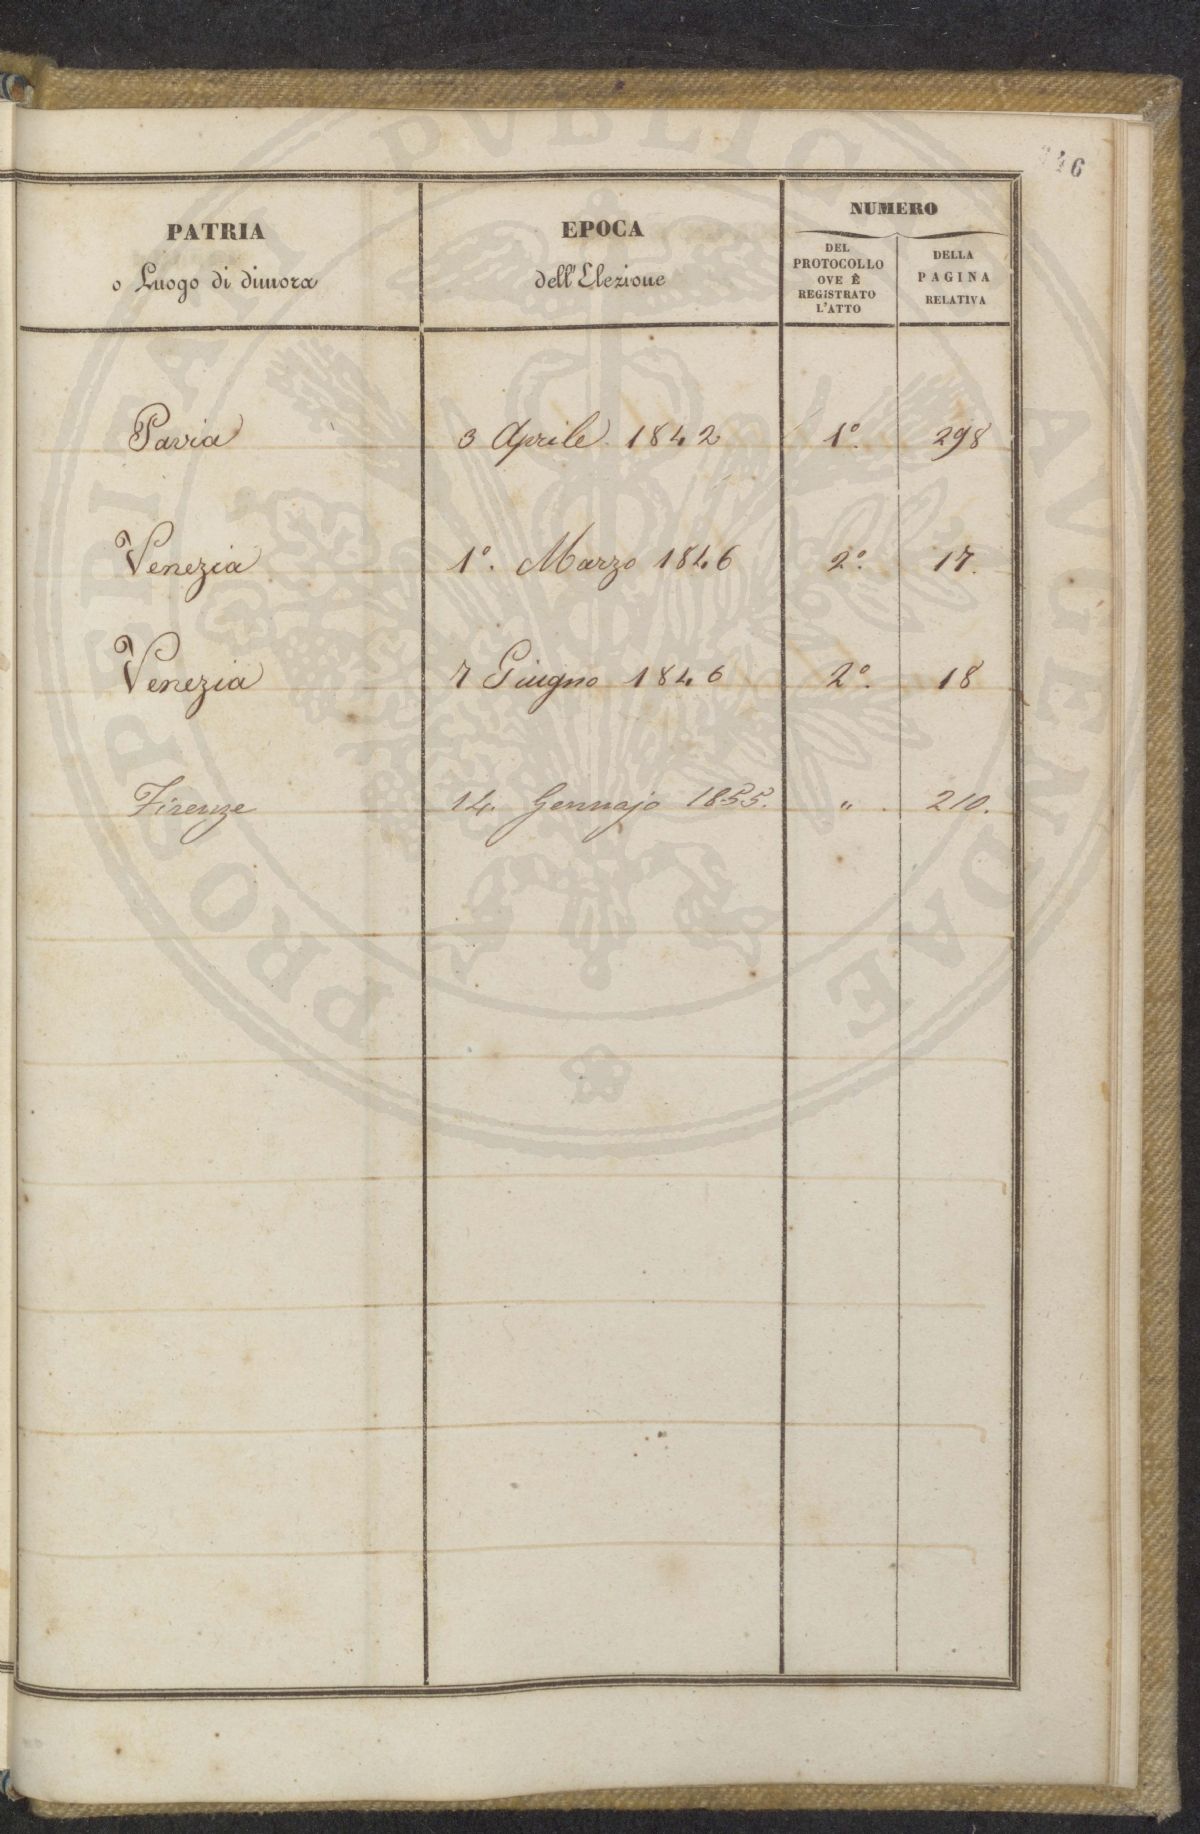 46
PATRIA
o Luogo di dimora
EPOCA
dell'Elezione
NUMERO
DEL
PROTOCOLLO
OVE È
REGISTRATO
L'ATTO
DELLA
PAGINA
RELATIVA
Pavia 3 Aprile 1842 1º. 298
Venezia 1º. Marzo 1846 2º. 17.
Venezia 7 Giugno 1846 2º. 18
Firenze 14. Gennajo 1855. " . 210.
PROSPERITATI PVBLICAE AVGENDAE